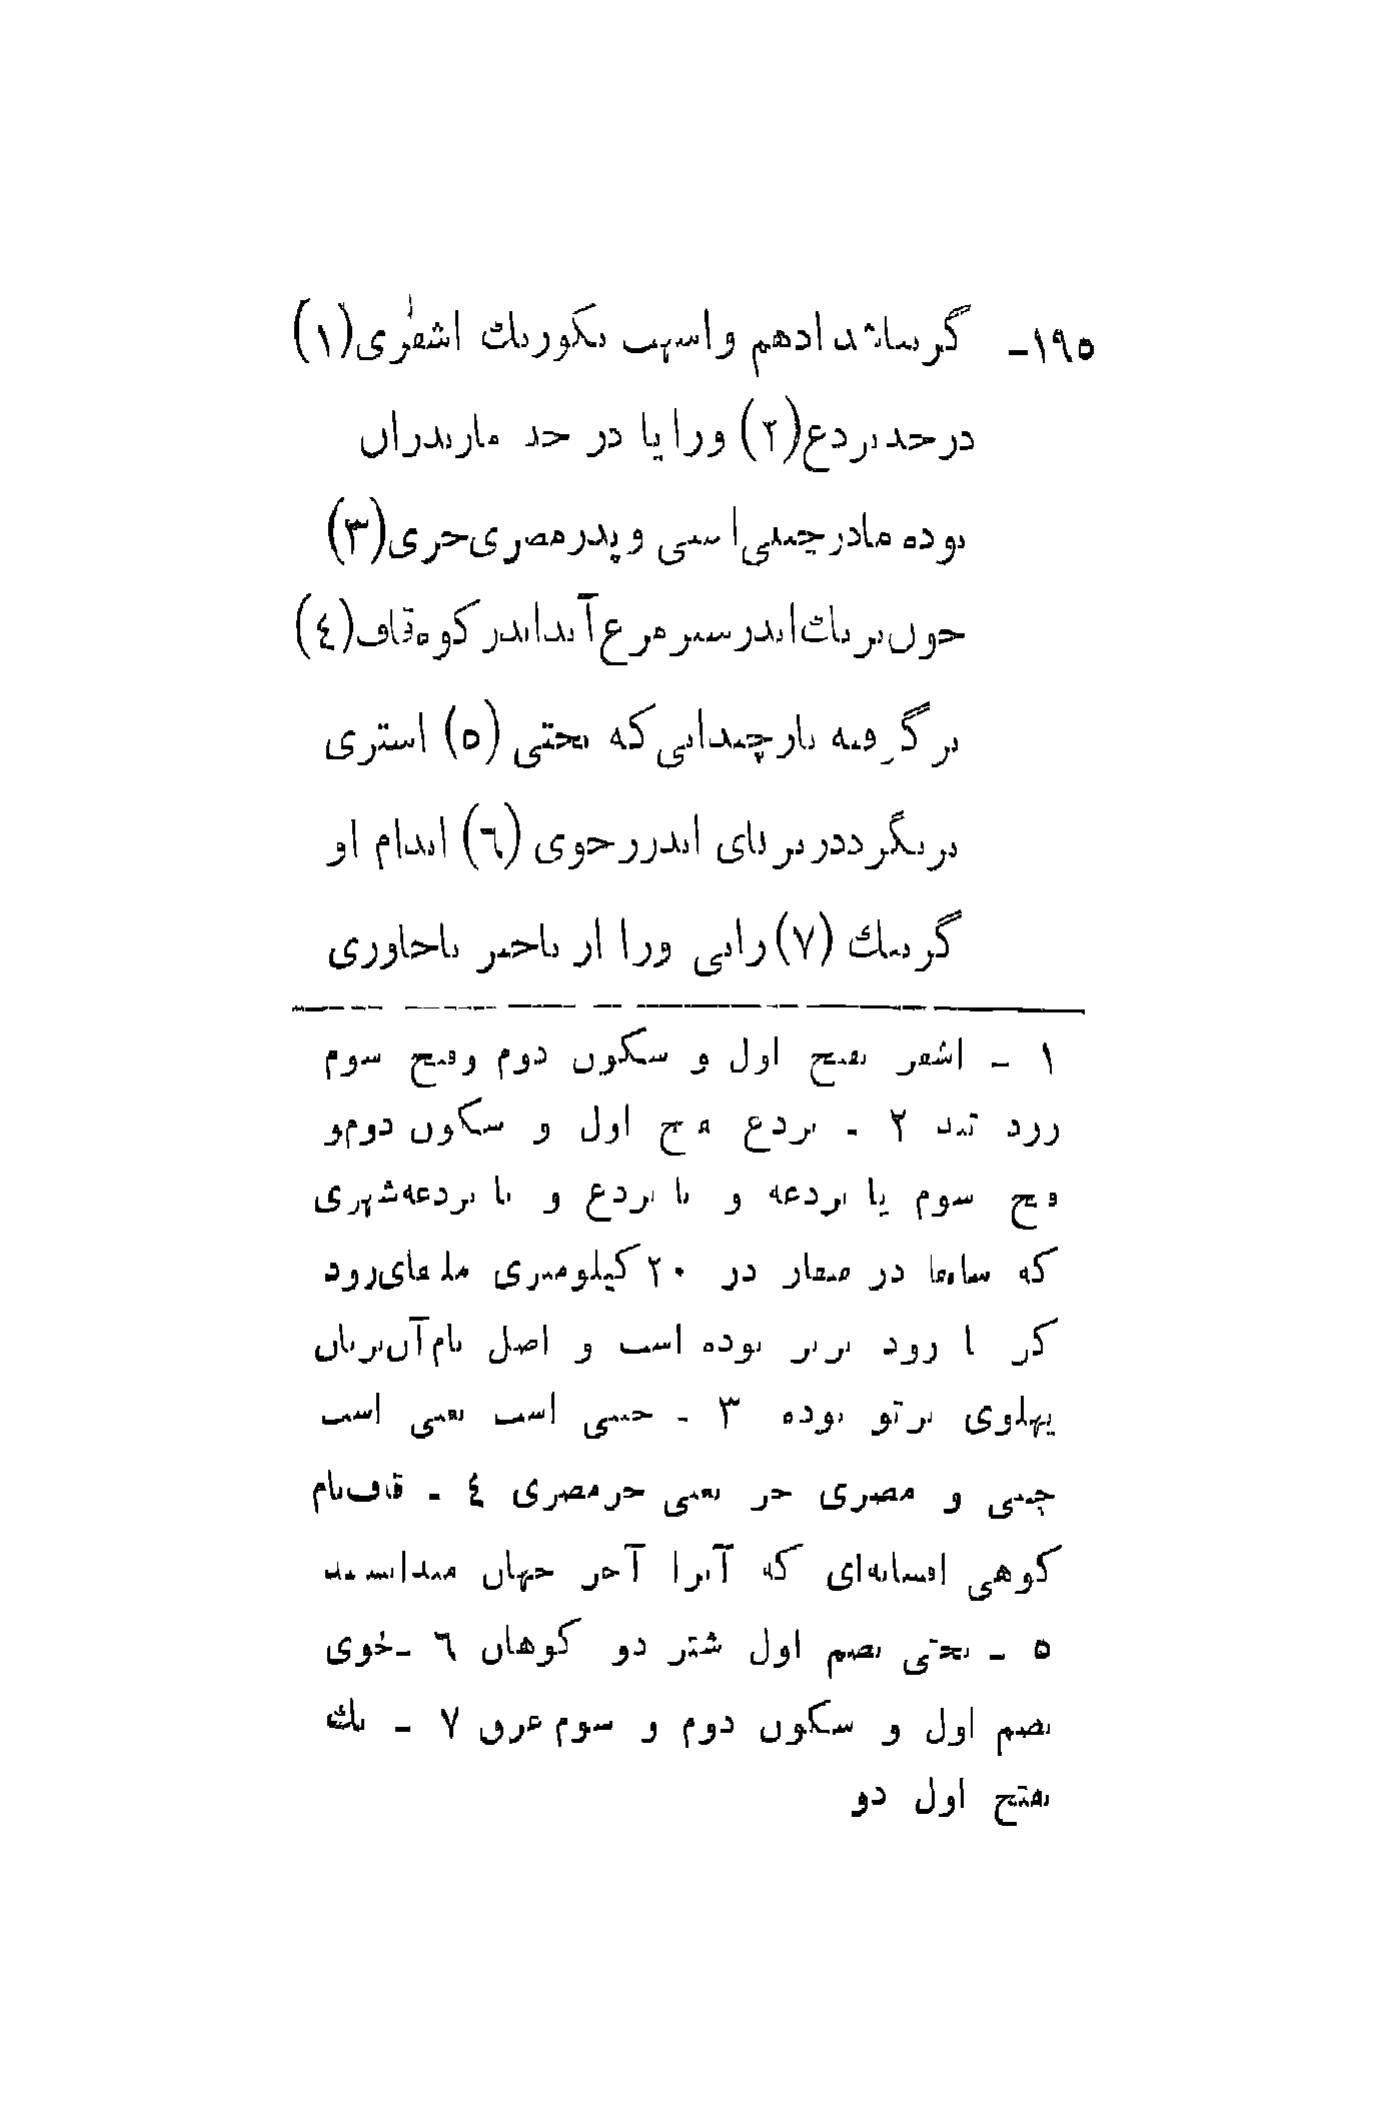 ۱۹٥- گر نباشد ادهم و اسپت نکو ریك اشقری (۱)
در حد بردع (۲) ورا یا در حد مازندران
بوده مادر چینی اسبی و پدر مصری خری (۳)
چون بر یك اندر سیر مرغ آید اندر کوه قاف (٤)
بر گرفته بار چندانی که بختی (٥) استری
بر نگردد در بر نای اندرر خوی (٦) اندام او
گر بیك (۷) رانی ورا از باختر تا خاوری
۱ - اشقر بفتح اول و سکون دوم و فتح سوم
زرد تند ۲ - بردع بفتح اول و سکون دوم و
فتح سوم یا بردعه و یا بردع و یا بردعه شهری
که سابقا در قفقاز در ۲۰ کیلومتری ملتقای رود
کر با رود بربر بوده است و اصل نام آن بزبان
پهلوی پرتو بوده ۳ - چینی اسب یعنی اسب
چینی و مصری خر یعنی خر مصری ٤ - قاف نام
کوهی افسانه‌ای که آنرا آخر جهان میدانستند
٥ - بختی بضم اول شتر دو کوهان ٦ - خوی
بضم اول و سکون دوم و سوم عرق ۷ - تك
بفتح اول دو